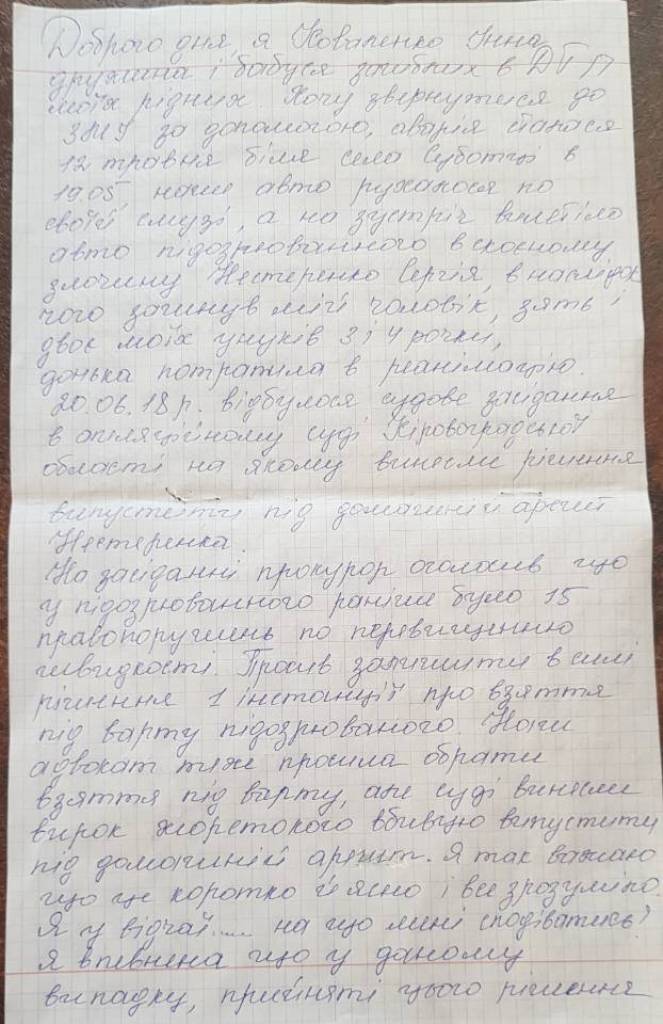 Доброго дня, я Коваленко Інна
дружина і бабуся загиблих в ДТП
моїх рідних. Хочу звернутися до
ЗМУ за допомогою, аварія сталася
12 травня біля села Суботці в
19.05, наше авто рухалося по
своїй смузі, а на зустріч вилетіло
авто підозрюванного в скоєному
злочину Нестеренко Сергія, в наслідок
чого загинув мій чоловік, зять і
двоє моїх унуків 3 і 4 рочки,
донька потрапила в реанімацію.
20.06.18 р. відбулося судове засідання
в апіляційному суді Кіровоградської
області на якому винесли рішення
випустити під домашній арешт
Нестеренка.
На засіданні прокурор оголосив що
у підозрюванного раніше було 15
правопорушень по перевищенню
швидкості. Просив залишити в силі
рішення 1 інстанції про взяття
під варту підозрюваного. Наш
адвокат теж просила обрати
взяття під варту, але суді винесли
вирок жорстокого вбивцю випустити
під домашній арешт. Я так вважаю
що це коротко й ясно і все зрозуміло.
Я у відчаї..... на що мені сподіватись!
Я впевнена що у даному
випадку, прийняті цього рішення